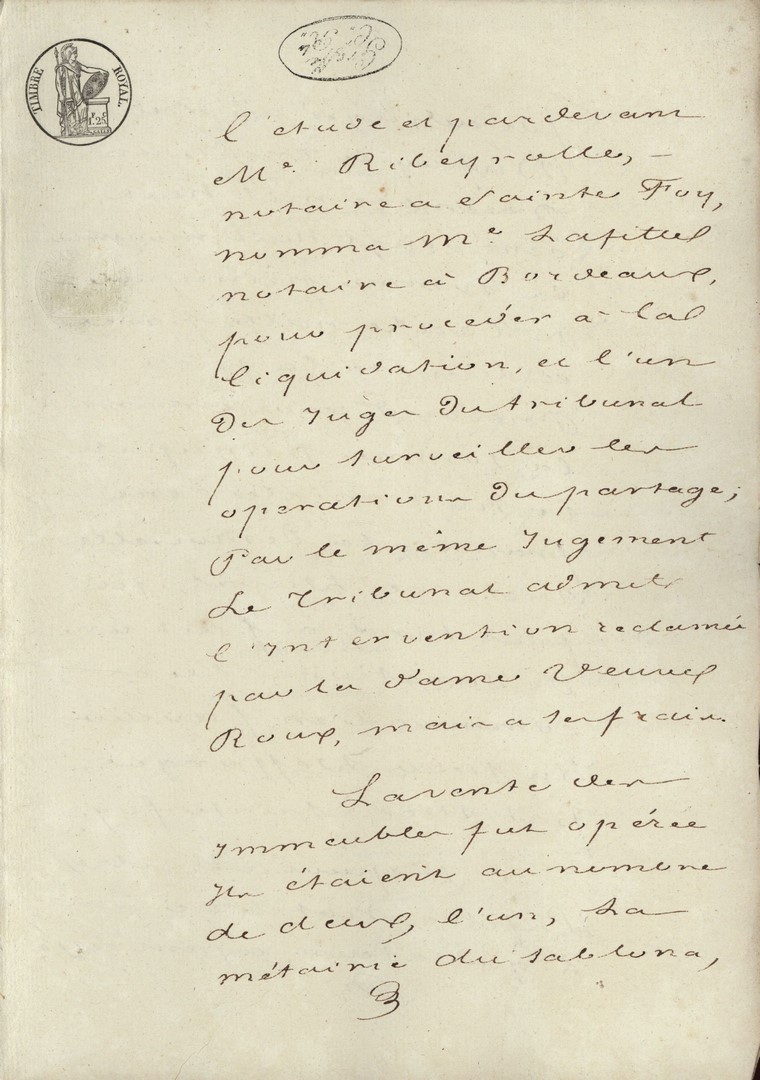 TIMBRE ROYAL.
1F 25C
l'étude et pardevant
Me. Ribeyrolle, -
notaire a Sainte Foy,
nomma Me. Lafitte
notaire à Bordeaux,
pour procéder à la
liquidation, et l'un
Des Juges Du tribunal
pour surveiller les
operations Du partage;
Par le même Jugement
Le Tribunal admet
l'Intervention reclamée
par la Dame Veuve
Roux, mais a ses frais.
La vente des
Immeubles fut opérée
Ils étaient au nombre
de deux, l'un, La
métairie du Sablona,
3